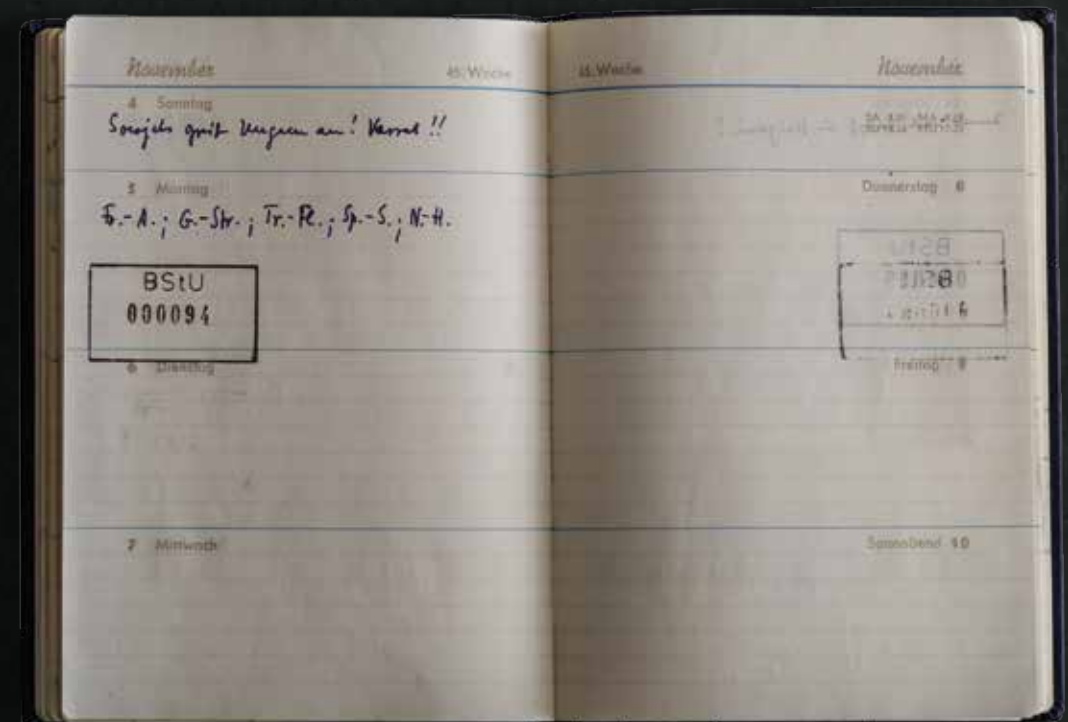 November 45. Woche
4 Sonntag
Sowjets greift Ungarn an! Verrat!!
5 Montag
G.-Str.; Tr.-Pl.; Sp.-S.; N.-H.
BStU
000094
6 Dienstag
7 Mittwoch
45. Woche November
Donnerstag 8
BStU
Freitag 9
Sonnabend 10